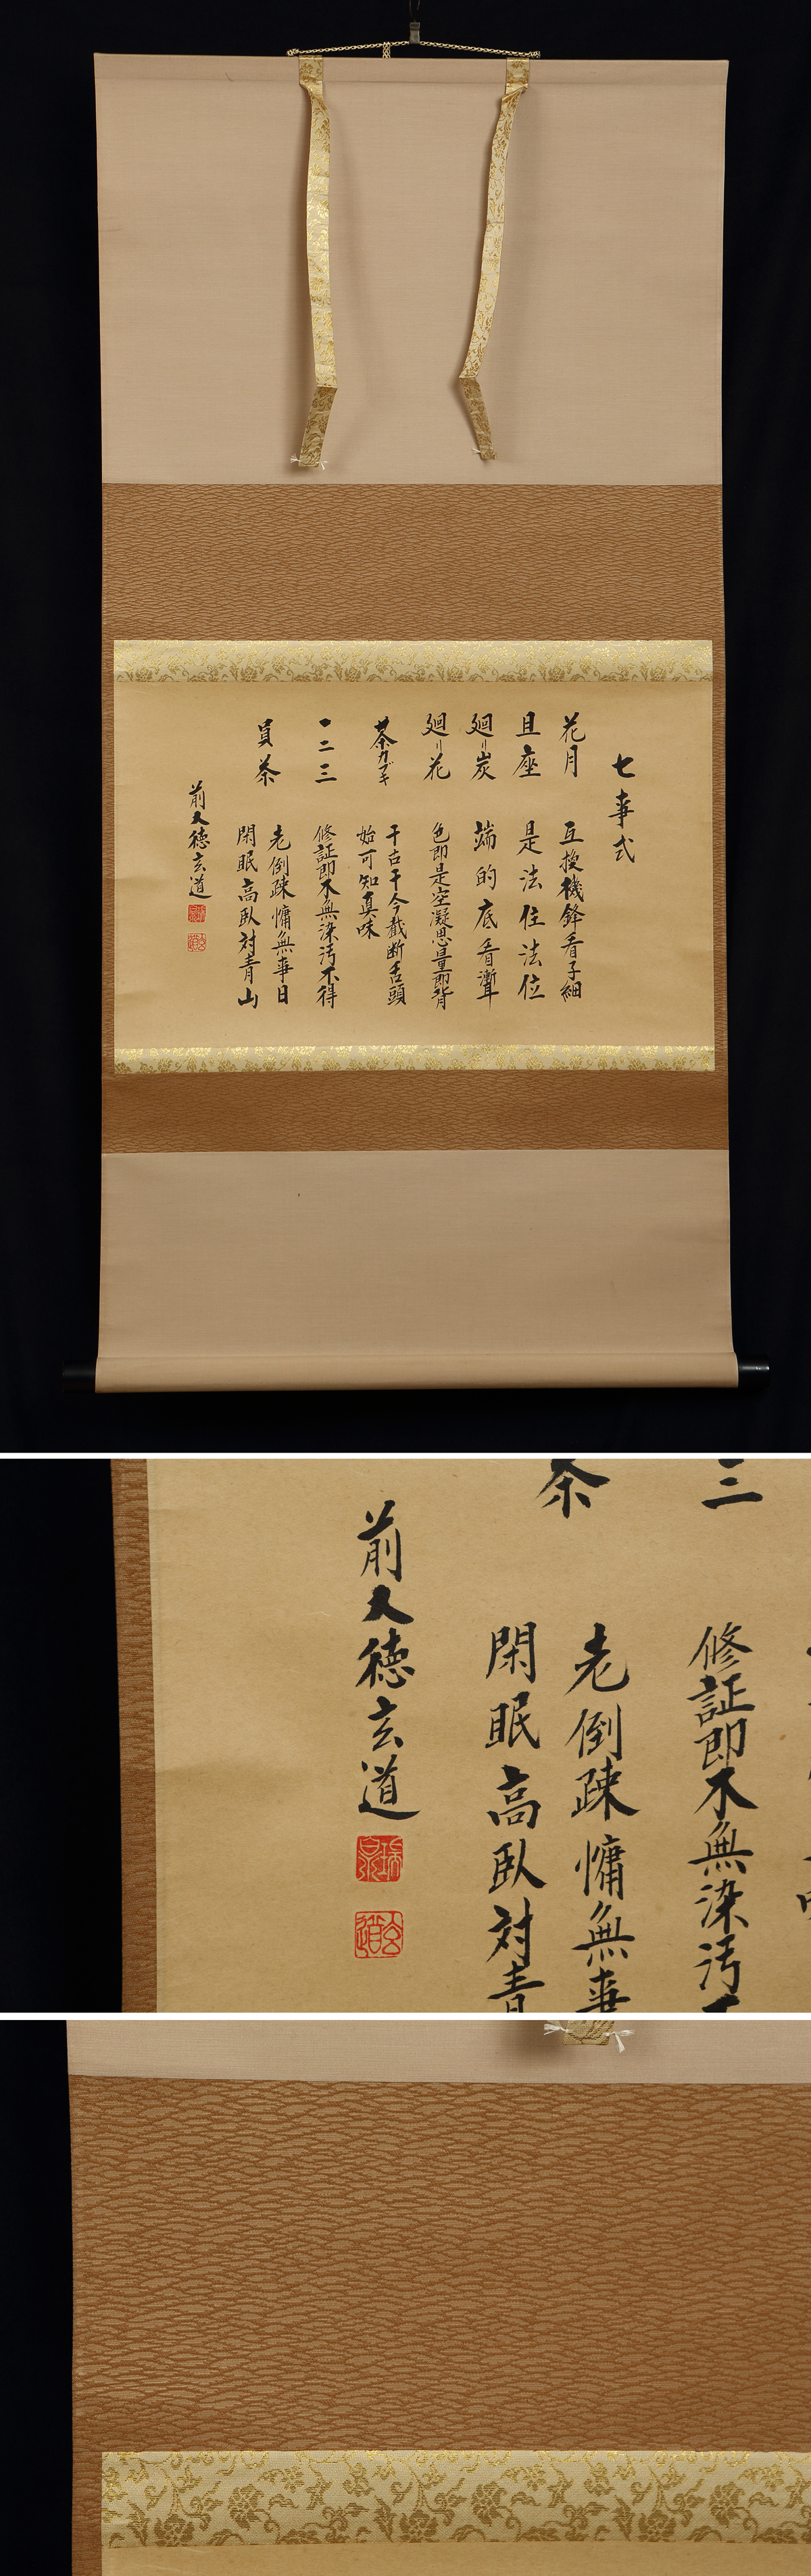 七事式
花月 互換機鋒看子細
且座 是法住法位
廻リ炭 端的底看漸聻
廻リ花 色即是空凝思量即背
茶カブキ 千古千今截断舌頭
始可知真味
一二三 修証即不無染汚不得
員茶 老倒疎慵無事日
閑眠高臥対青山
前大徳玄道
瑞泉
玄道
茶
三
修証即不無染汚不
老倒疎慵無事
閑眠高臥対青
前大徳玄道
瑞泉
玄道